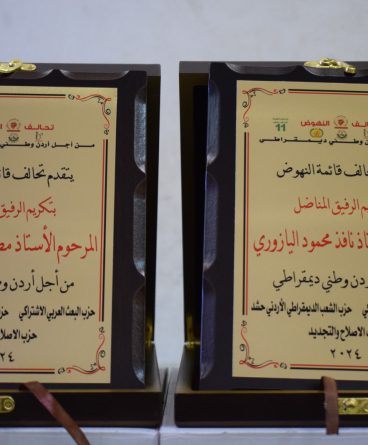 النهوض
11
ن وطني ديمقراطي
الف قائمة النهوض
يم الرفيق المناضل
اذ نافذ محمود اليازوري
ردن وطني ديمقراطي
كي حزب الشعب الديمقراطي الأردني حشد
ب الاصلاح والتجديد
٢٠٢٤
تحالف
من أجل أردن وطني
يتقدم تحالف قائ
بتكريم الرفيق
المرحوم الأستاذ مص
من أجل أردن و
حزب البعث العربي الاشتراكي حز
حزب الاصلا
٢٤